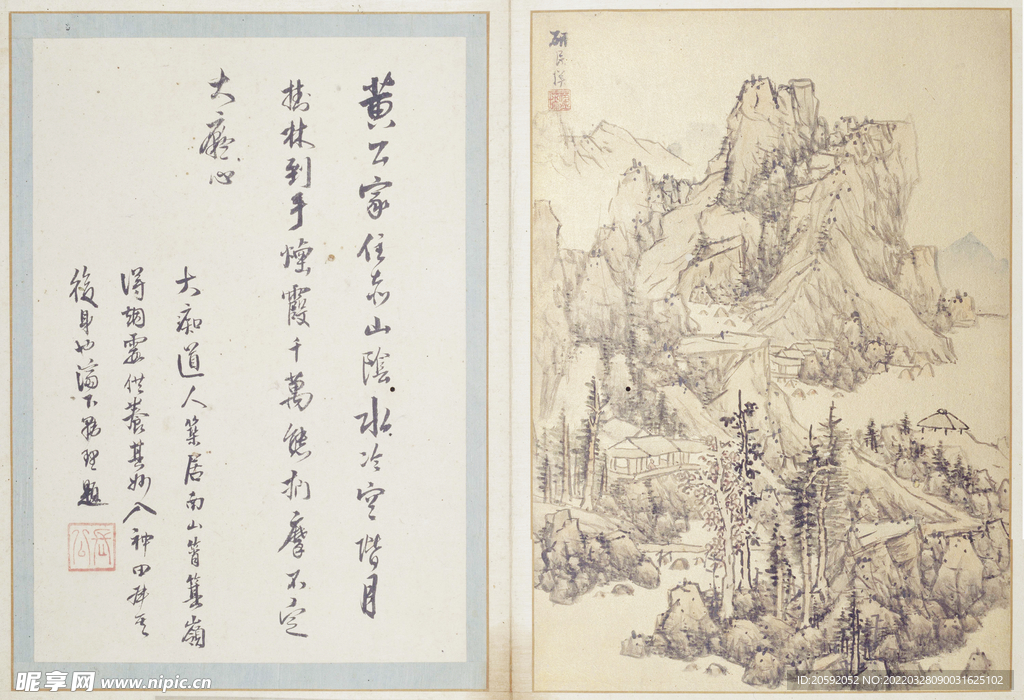 黄公家住赤山陰水冷空階月
樹林到手煙霞千萬態捫摩不定
大癡心
大癡道人築居南山筲箕嶺
得朝雲供養其妙入神田
後身也
題
研民
昵享网 www.nipic.cn
ID:20592052 NO:20220328090031625102